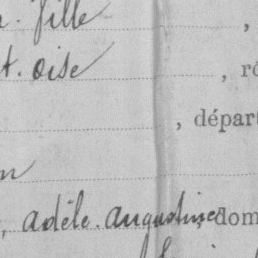 fille ,
t. oise , ré
, départ
n
, adèle. augustine, dom